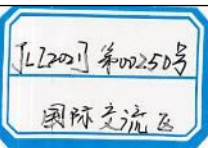 JL[202]第00250号
国际交流区